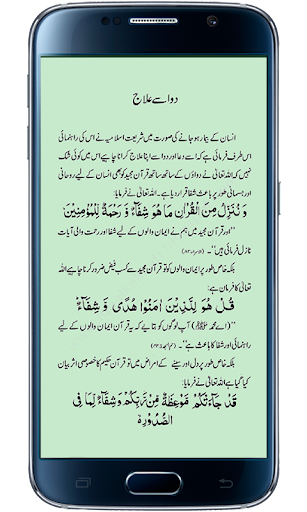 دوا سے علاج
انسان کے بیمار ہو جانے کی صورت میں شریعت اسلامیہ نے اس کی راہنمائی
اس طرف فرمائی ہے کہ اسے دعا اور دوا سے اپنا علاج کرانا چاہیے اس میں کوئی شک
نہیں کہ اللہ تعالیٰ نے دواؤں کے ساتھ ساتھ قرآن مجید کو بھی انسان کے لیے روحانی
اور جسمانی طور پر باعث شفا قرار دیا ہے۔ اللہ تعالیٰ نے فرمایا:
وَ نُنَزِّلُ مِنَ الْقُرْاٰنِ مَا هُوَ شِفَآءٌ وَّ رَحْمَةٌ لِّلْمُؤْمِنِيْنَ
''اور قرآن مجید میں ہم نے ایمان والوں کے لیے شفا اور رحمت والی آیات
نازل فرمائی ہیں''۔
بلکہ خاص طور پر ایمان والوں کو تو قرآن مجید سے کسب فیض ضرور کرنا چاہیے اللہ
تعالیٰ کا فرمان ہے:
قُلْ هُوَ لِلَّذِيْنَ اٰمَنُوْا هُدًى وَّ شِفَآءٌ
''(اے محمد ﷺ) آپ لوگوں کو بتائیے کہ یہ قرآن ایمان والوں کے لیے
راہنمائی اور شفا کا باعث ہے''۔
بلکہ خاص طور پر دل اور سینے کے امراض میں تو قرآن حکیم کا خصوصی اثر بیان
کیا گیا ہے اللہ تعالیٰ نے فرمایا:
قَدْ جَآءَتْكُمْ مَّوْعِظَةٌ مِّنْ رَّبِّكُمْ وَ شِفَآءٌ لِّمَا فِى
الصُّدُوْرِ